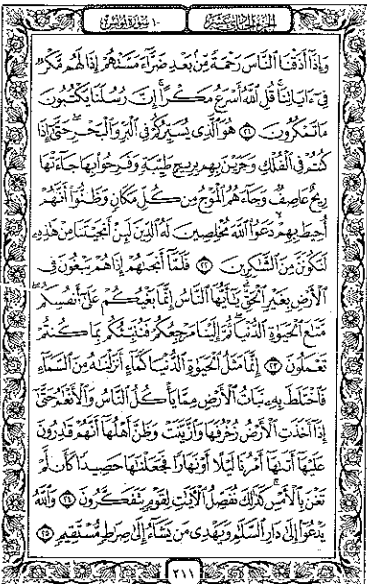 الجزء الحادي عشر
١٠ سورة يونس
وَإِذَآ أَذَقْنَا ٱلنَّاسَ رَحْمَةً مِّنۢ بَعْدِ ضَرَّآءَ مَسَّتْهُمْ إِذَا لَهُم مَّكْرٌ
فِىٓ ءَايَاتِنَا ۚ قُلِ ٱللَّهُ أَسْرَعُ مَكْرًا ۚ إِنَّ رُسُلَنَا يَكْتُبُونَ
مَا تَمْكُرُونَ ٢١ هُوَ ٱلَّذِى يُسَيِّرُكُمْ فِى ٱلْبَرِّ وَٱلْبَحْرِ ۖ حَتَّىٰٓ إِذَا
كُنتُمْ فِى ٱلْفُلْكِ وَجَرَيْنَ بِهِم بِرِيحٍ طَيِّبَةٍ وَفَرِحُوا۟ بِهَا جَآءَتْهَا
رِيحٌ عَاصِفٌ وَجَآءَهُمُ ٱلْمَوْجُ مِن كُلِّ مَكَانٍ وَظَنُّوٓا۟ أَنَّهُمْ
أُحِيطَ بِهِمْ ۙ دَعَوُا۟ ٱللَّهَ مُخْلِصِينَ لَهُ ٱلدِّينَ لَئِنْ أَنجَيْتَنَا مِنْ هَٰذِهِۦ
لَنَكُونَنَّ مِنَ ٱلشَّٰكِرِينَ ٢٢ فَلَمَّآ أَنجَىٰهُمْ إِذَا هُمْ يَبْغُونَ فِى
ٱلْأَرْضِ بِغَيْرِ ٱلْحَقِّ ۗ يَٰٓأَيُّهَا ٱلنَّاسُ إِنَّمَا بَغْيُكُمْ عَلَىٰٓ أَنفُسِكُم ۖ
مَّتَٰعَ ٱلْحَيَوٰةِ ٱلدُّنْيَا ۖ ثُمَّ إِلَيْنَا مَرْجِعُكُمْ فَنُنَبِّئُكُم بِمَا كُنتُمْ
تَعْمَلُونَ ٢٣ إِنَّمَا مَثَلُ ٱلْحَيَوٰةِ ٱلدُّنْيَا كَمَآءٍ أَنزَلْنَٰهُ مِنَ ٱلسَّمَآءِ
فَٱخْتَلَطَ بِهِۦ نَبَاتُ ٱلْأَرْضِ مِمَّا يَأْكُلُ ٱلنَّاسُ وَٱلْأَنْعَٰمُ حَتَّىٰٓ
إِذَآ أَخَذَتِ ٱلْأَرْضُ زُخْرُفَهَا وَٱزَّيَّنَتْ وَظَنَّ أَهْلُهَآ أَنَّهُمْ قَٰدِرُونَ
عَلَيْهَآ أَتَىٰهَآ أَمْرُنَا لَيْلًا أَوْ نَهَارًا فَجَعَلْنَٰهَا حَصِيدًا كَأَن لَّمْ
تَغْنَ بِٱلْأَمْسِ ۚ كَذَٰلِكَ نُفَصِّلُ ٱلْءَايَٰتِ لِقَوْمٍ يَتَفَكَّرُونَ ٢٤ وَٱللَّهُ
يَدْعُوٓا۟ إِلَىٰ دَارِ ٱلسَّلَٰمِ وَيَهْدِى مَن يَشَآءُ إِلَىٰ صِرَٰطٍ مُّسْتَقِيمٍ ٢٥
٢١١